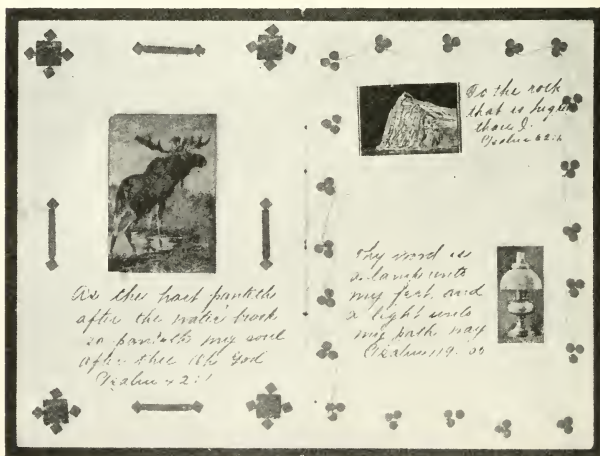 As the hart panteth
after the water brook
so panteth my soul
after thee Oh God
Psalm 42:1
To the rock
that is higher
than I.
Psalm 62:2
Thy word is
a lamp unto
my feet and
a light unto
my path way
Psalm 119.